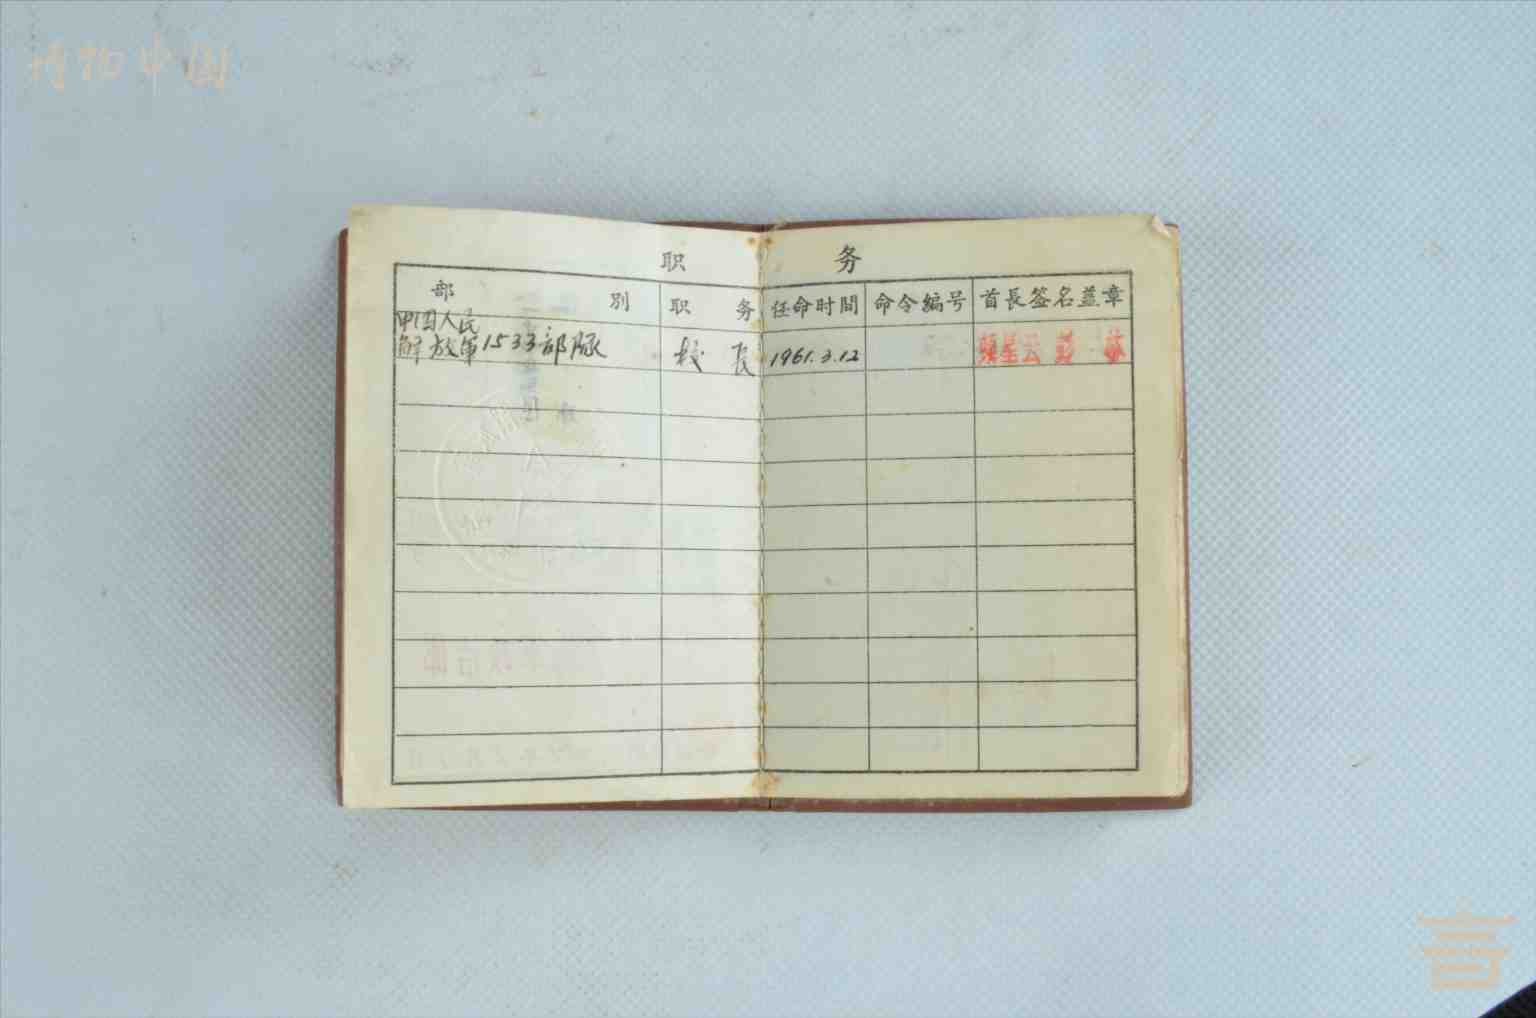 博物中国
职 务
部 别 职 务 任命时間 命令编号 首長签名盖章
中国人民
解放军1533部队 校长 1961.3.12